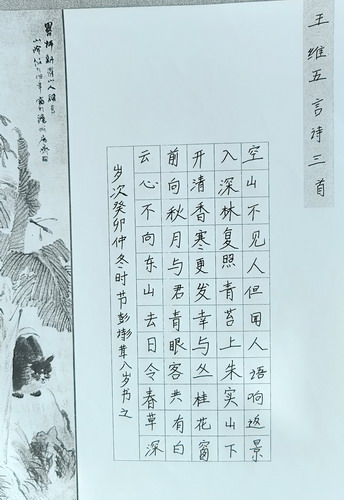 王维五言诗三首
空山不见人但闻人语响返景
入深林复照青苔上朱实山下
开清香寒更发幸与丛桂花窗
前向秋月与君青眼客共有白
云心不向东山去日令春草深
岁次癸卯仲冬时节彭澎八岁书之